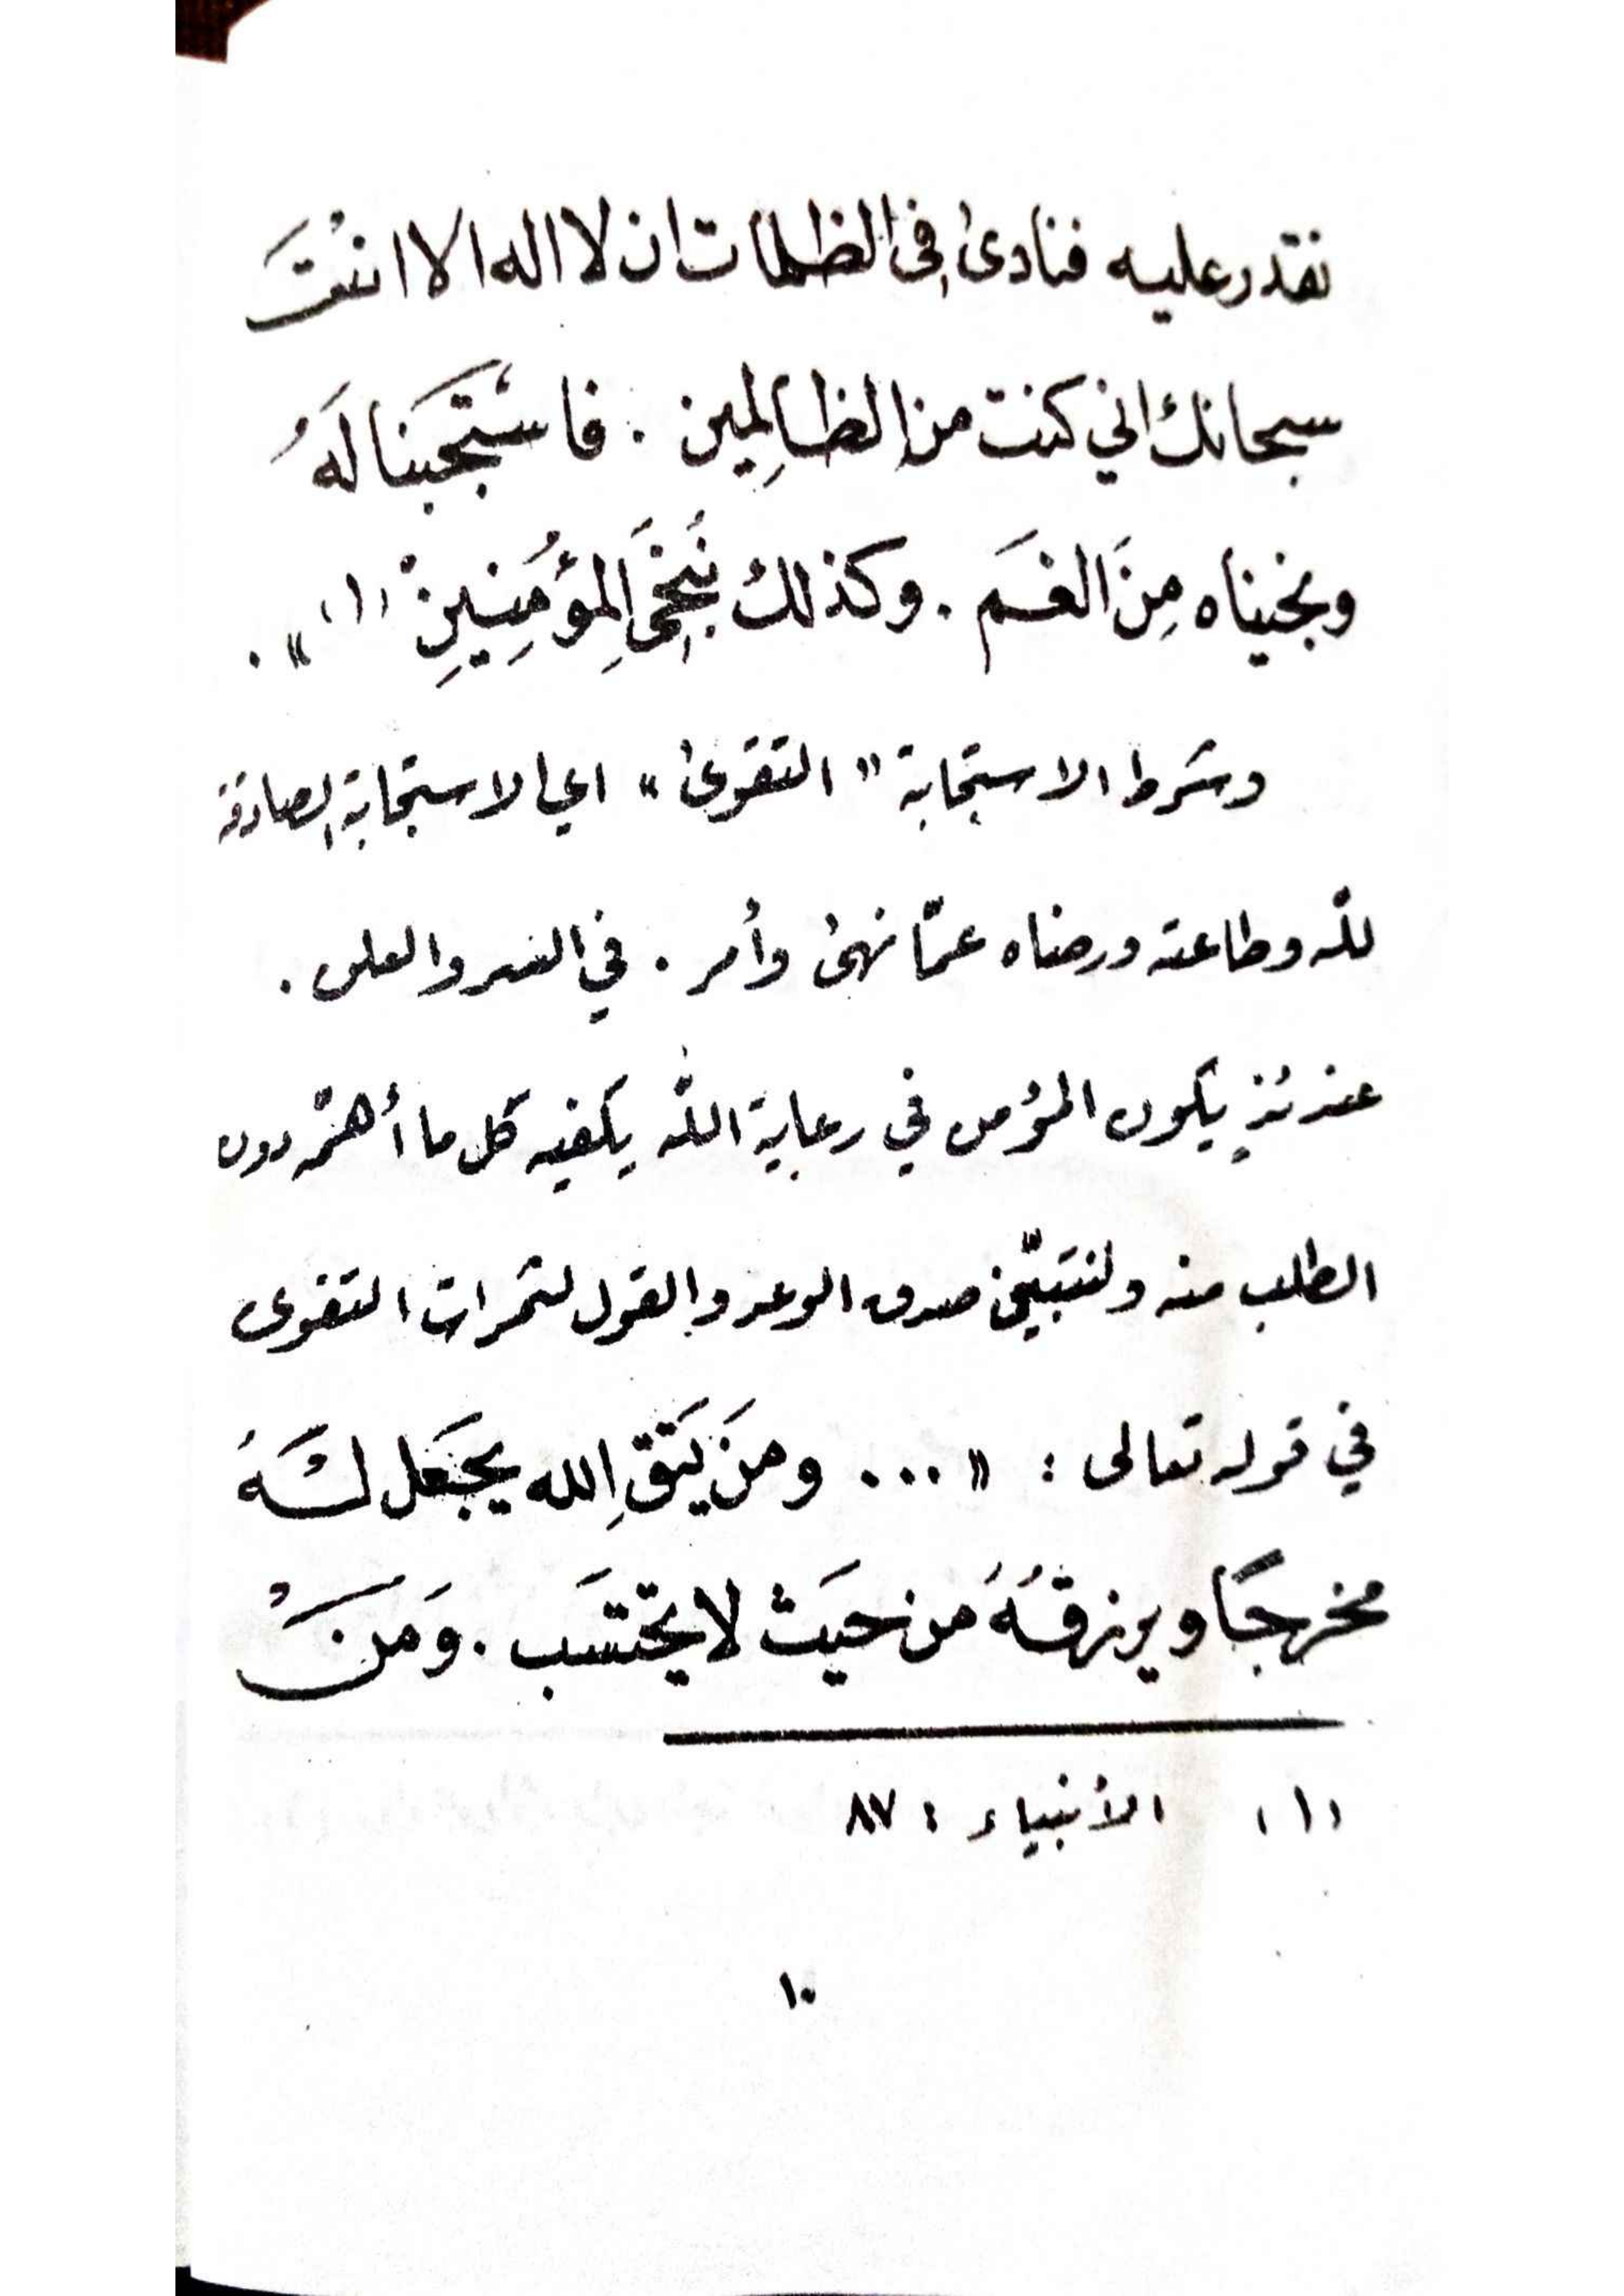 نقدر عليه فنادىٰ في الظلمات ان لا اله الا انتَ
سبحانك اني كنت من الظالِمين . فاستَجَبنا لَهُ
ونجيناه مِنَ الغَم . وكذلك نُنجَي المؤمِنِين (١) » .
وشرط الاستجابة « التقوىٰ » اي الاستجابة الصادقة
للّه وطاعته ورضاه عمّا نهىٰ وأمر . في السر والعلن .
عندئذٍ يكون المؤمن في رعاية اللّه يكفيه كل ما أهمّه دون
الطلب منه ولنتبيّن صدق الوعد والقول لثمرات التقوى
في قوله تعالى : « ... ومَن يَتقِ الله يجعَل لَهُ
مخرجًا ويرزقهُ من حيَث لا يحتسَب . وَمَنْ
(١) الأنبياء : ٨٧
١٠